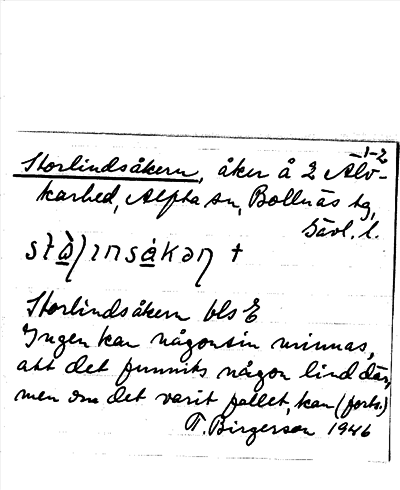 1-2
Storlindsåkern, åker å 2 Älv-
karhed, Alfta sn, Bollnäs tg,
Gävl. l.
Storlindsåkern bls E
Ingen kan någonsin minnas,
att det funnits någon lind där,
men om det varit fallet, kan (forts.)
T. Birgerson 1946